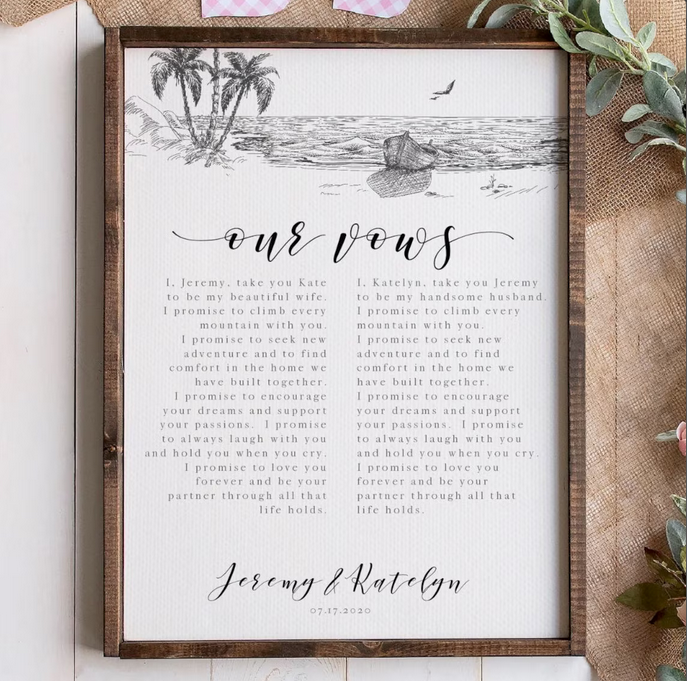 our vows
I, Jeremy, take you Kate
to be my beautiful wife.
I promise to climb every
mountain with you.
I promise to seek new
adventure and to find
comfort in the home we
have built together.
I promise to encourage
your dreams and support
your passions. I promise
to always laugh with you
and hold you when you cry.
I promise to love you
forever and be your
partner through all that
life holds.
I, Katelyn, take you Jeremy
to be my handsome husband.
I promise to climb every
mountain with you.
I promise to seek new
adventure and to find
comfort in the home we
have built together.
I promise to encourage
your dreams and support
your passions. I promise
to always laugh with you
and hold you when you cry.
I promise to love you
forever and be your
partner through all that
life holds.
Jeremy & Katelyn
07.17.2020